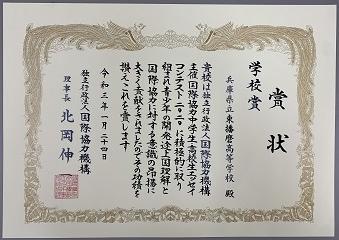 賞状
学校賞
兵庫県立東播磨高等学校 殿
貴校は独立行政法人国際協力機構
主催国際協力中学生・高校生エッセイ
コンテスト二〇二〇に積極的に取り
組まれ青少年の開発途上国理解と
国際協力に対する意識の昂揚に
大きく貢献をされましたのでその功績を
讃えこれを賞します
令和三年一月二十四日
独立行政法人国際協力機構
理事長 北岡伸一